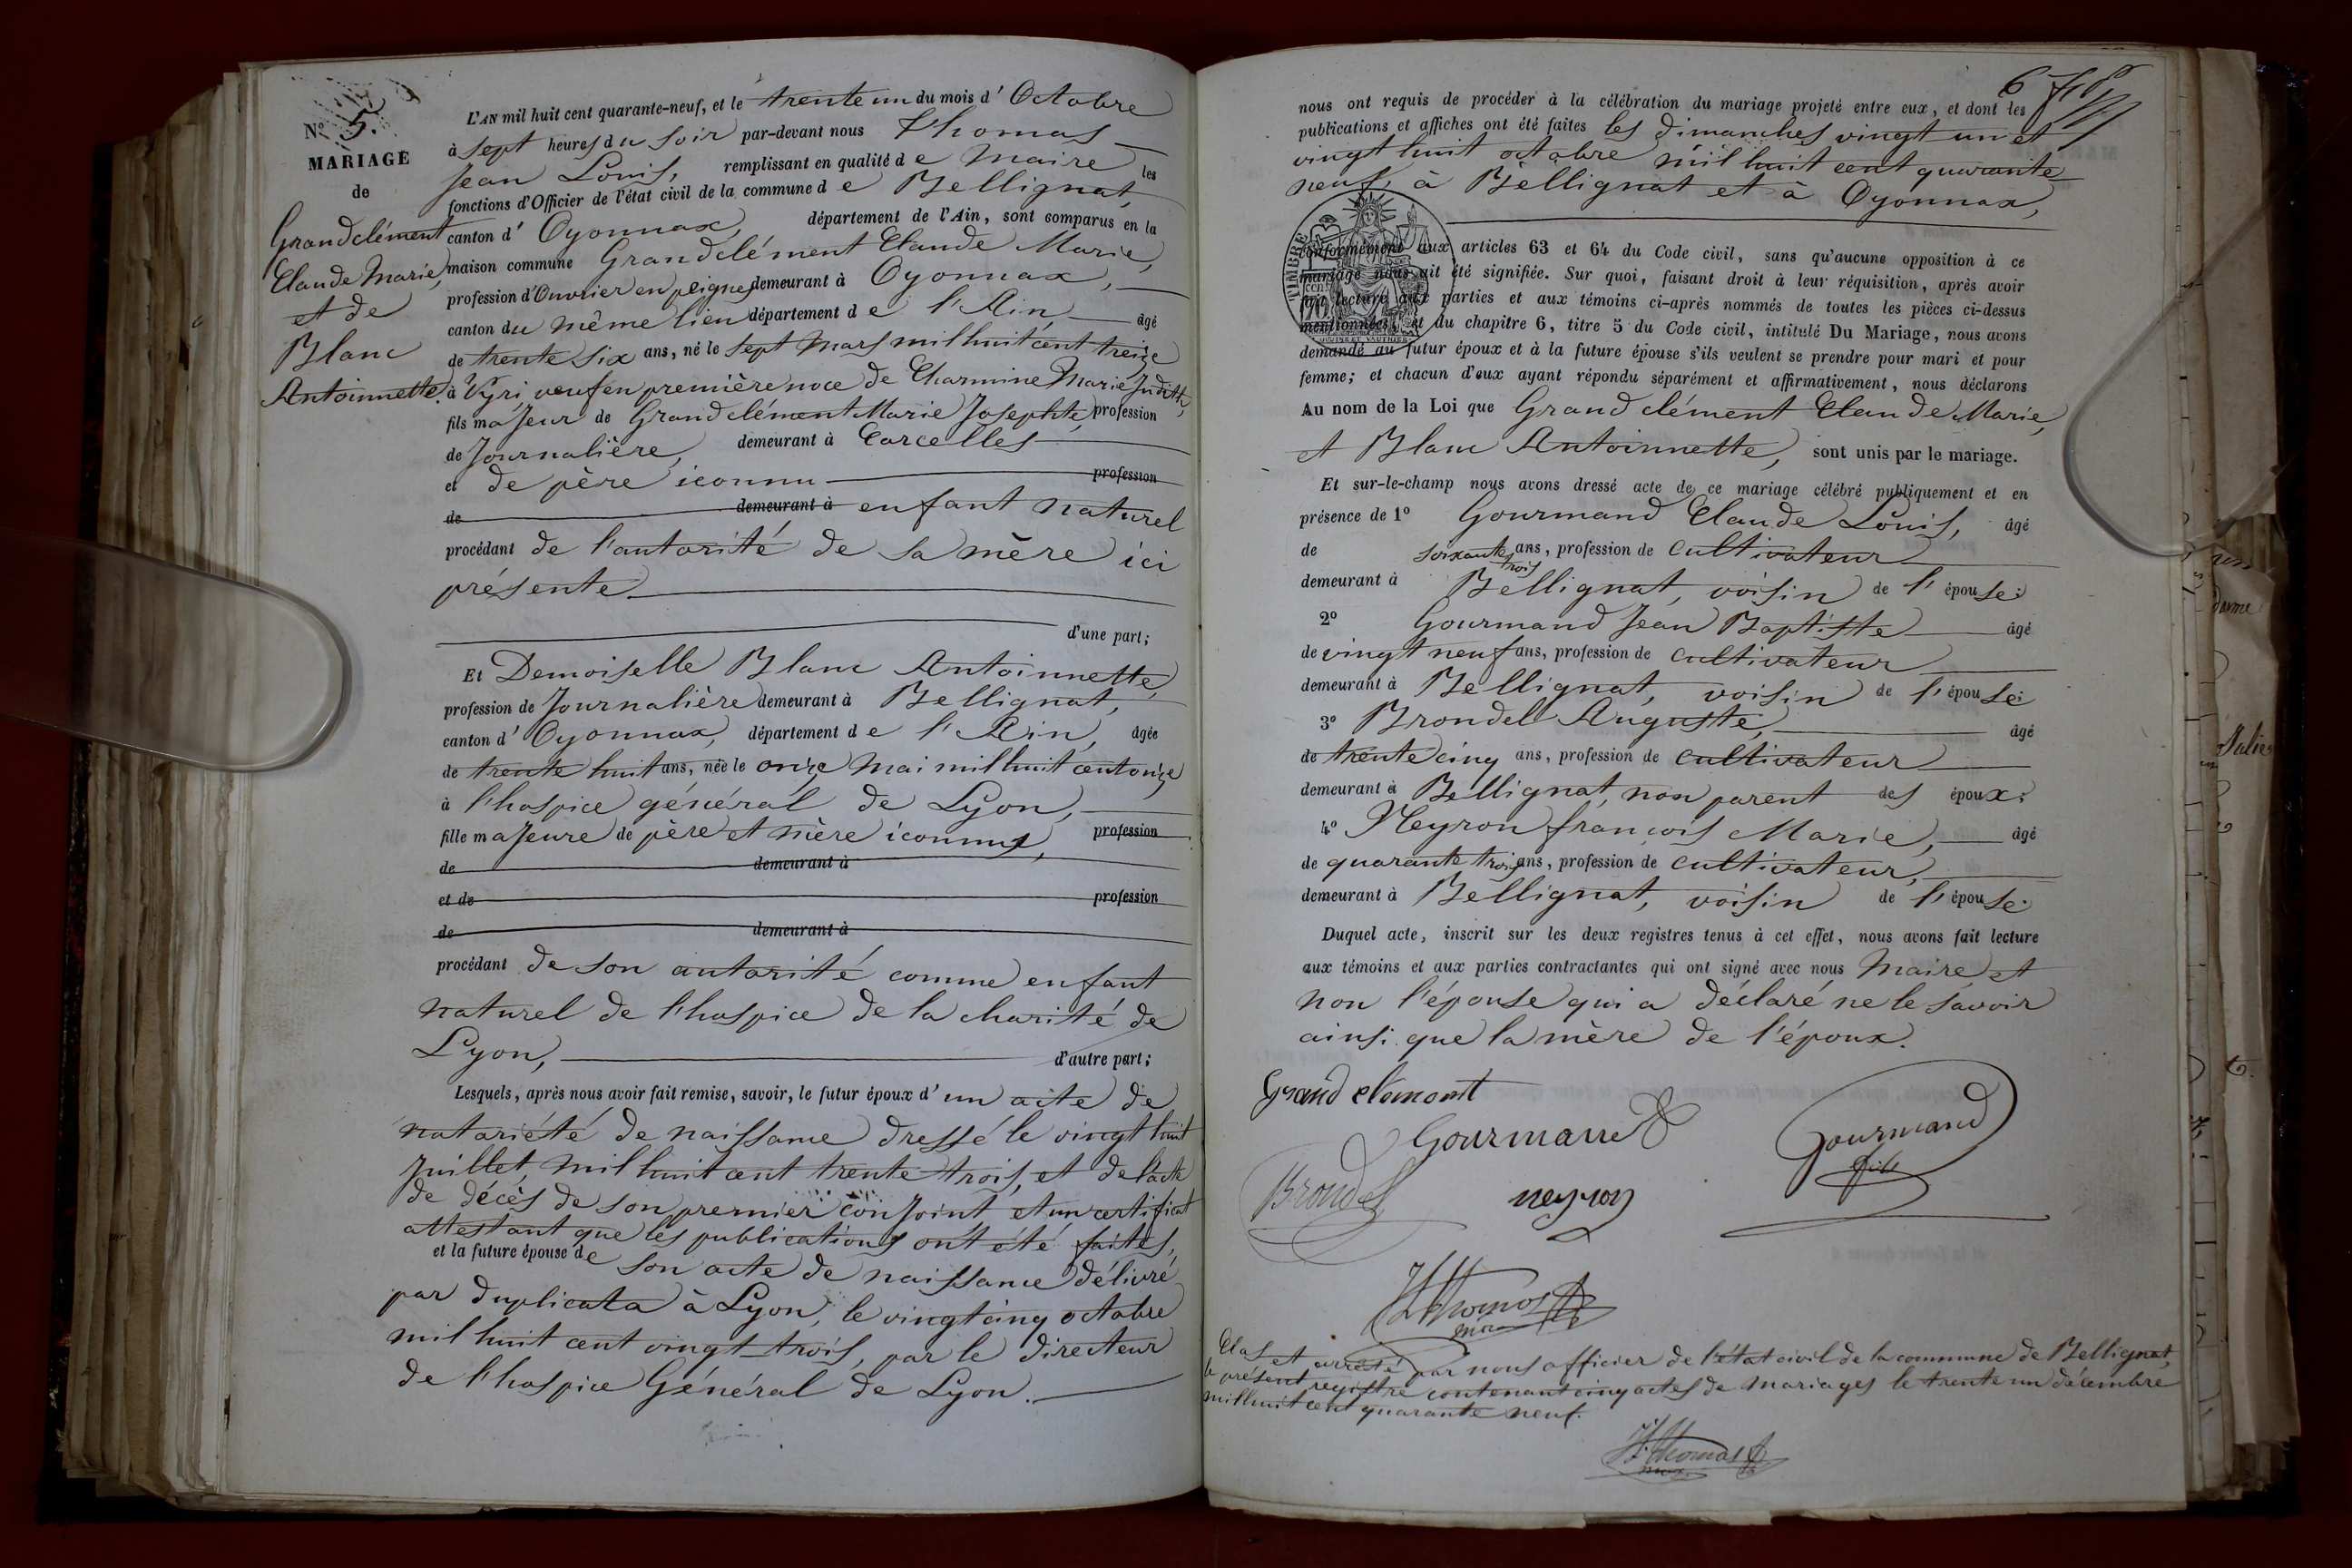 N° 5.
MARIAGE
de
Grandclément
Claude Marie,
et de
Blanc
Antoinnette.
L'AN mil huit cent quarante-neuf, et le trente un du mois d' Octobre
à sept heures du soir par-devant nous Thomas
Jean Louis, remplissant en qualité de Maire les
fonctions d'Officier de l'état civil de la commune de Bellignat,
canton d' Oyonnax, département de l'Ain, sont comparus en la
maison commune Grandclément Claude Marie,
profession d'Ouvrier en peignes demeurant à Oyonnax,
canton du même lieu département de l'Ain âgé
de trente six ans, né le sept Mars mil huit cent treize
à Vyri, veuf en première noce de Charmine Marie Judith,
fils majeur de Grandclément Marie Josephte, profession
de Journalière, demeurant à Corcelles
et de père iconnu profession
de demeurant à enfant naturel
procédant de l'autorité de sa mère ici
présente
d'une part;
Et Demoiselle Blanc Antoinnette,
profession de Journalière demeurant à Bellignat,
canton d' Oyonnax, département de l'Ain, âgée
de trente huit ans, née le onize Mai mil huit cent onize
à l'hospice général de Lyon,
fille majeure de père et mère iconnus, profession
de demeurant à
et de profession
de demeurant à
procédant de son autorité comme enfant
naturel de l'hospice de la charité de
Lyon, d'autre part;
Lesquels, après nous avoir fait remise, savoir, le futur époux d' un acte de
notariété de naissance dressé le vingt huit
Juillet, mil huit cent trente trois, et de l'acte
de décès de son premier conjoint et un certificat
attestant que les publications ont été faites,
et la future épouse de son acte de naissance délivré
par duplicata à Lyon, le vingt cinq octobre
mil huit cent vingt-trois, par le directeur
de l'hospice Général de Lyon.
6
nous ont requis de procéder à la célébration du mariage projeté entre eux, et dont les
publications et affiches ont été faites les dimanches vingt un et
vingt huit octobre mil huit cent quarante
neuf, à Bellignat et à Oyonnax,
TIMBRE
conformément aux articles 63 et 64 du Code civil, sans qu'aucune opposition à ce
mariage nous ait été signifiée. Sur quoi, faisant droit à leur réquisition, après avoir
fait lecture aux parties et aux témoins ci-après nommés de toutes les pièces ci-dessus
mentionnées, et du chapitre 6, titre 5 du Code civil, intitulé Du Mariage, nous avons
demandé au futur époux et à la future épouse s'ils veulent se prendre pour mari et pour
femme; et chacun d'eux ayant répondu séparément et affirmativement, nous déclarons
Au nom de la Loi que Grandclément Claude Marie,
et Blanc Antoinnette, sont unis par le mariage.
Et sur-le-champ nous avons dressé acte de ce mariage célébré publiquement et en
présence de 1° Gourmand Claude Louis, âgé
de soixante trois ans, profession de cultivateur
demeurant à Bellignat, voisin de l'épouse:
2° Gourmand Jean Baptiste âgé
de vingt neuf ans, profession de cultivateur
demeurant à Bellignat, voisin de l'épouse:
3° Brondel Auguste, âgé
de trente cinq ans, profession de cultivateur
demeurant à Bellignat, non parent des époux:
4° Neyron françois Marie, âgé
de quarante trois ans, profession de cultivateur,
demeurant à Bellignat, voisin de l'épouse.
Duquel acte, inscrit sur les deux registres tenus à cet effet, nous avons fait lecture
aux témoins et aux parties contractantes qui ont signé avec nous Maire et
non l'épouse qui a déclaré ne le savoir
ainsi que la mère de l'époux.
Grand clément
Gourmand
Gourmand
fils
Brondel
neyron
JL thomas
maire
Clos et arrêté par nous officier de l'état civil de la commune de Bellignat,
le présent registre contenant cinq actes de mariages le trente un décembre
mil huit cent quarante neuf.
JL thomas
maire